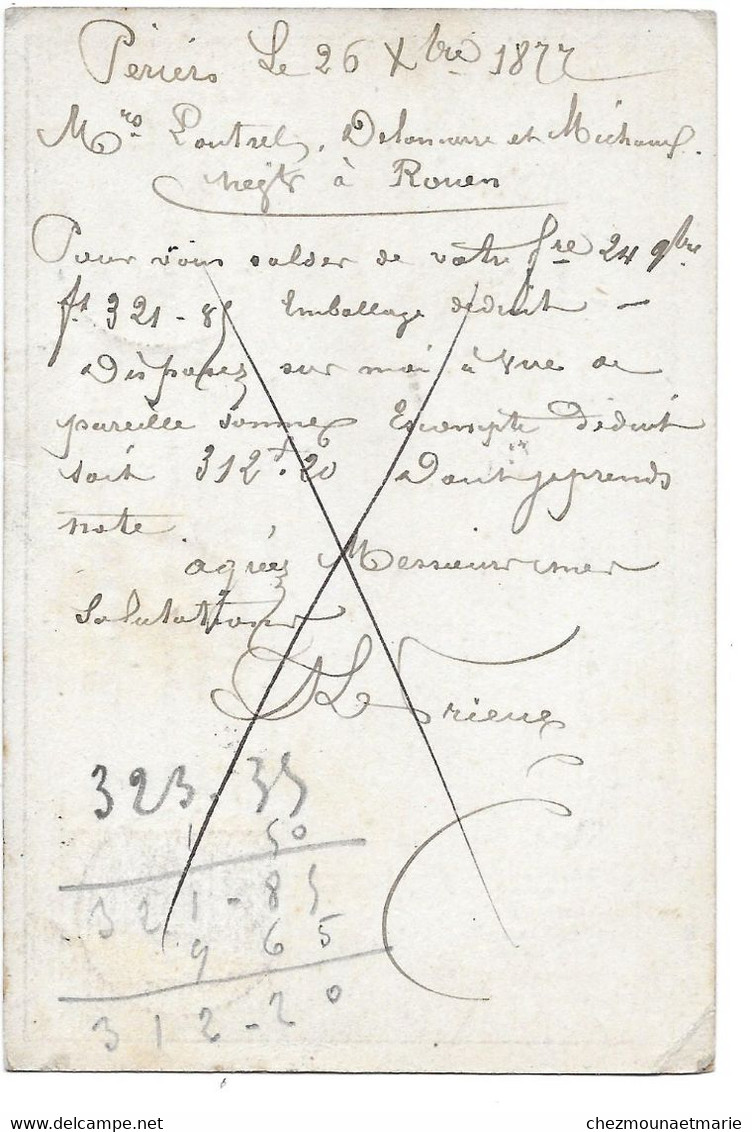 Périers Le 26 Xbre 1877
Mrs Poutrel, Delamarre et Michaux
Negts à Rouen
Pour vous solder de votre fre 24 9bre
ft 321-85 Emballage déduit —
Disposez sur moi à vue de
pareille somme Escompte déduit
soit 312f.20 Dont je prends
note
agréez Messieurs mes
Salutations
Le Crieux
323.35
1 50
321-85
9 65
312-20
www.delcampe.net
chezmounaetmarie